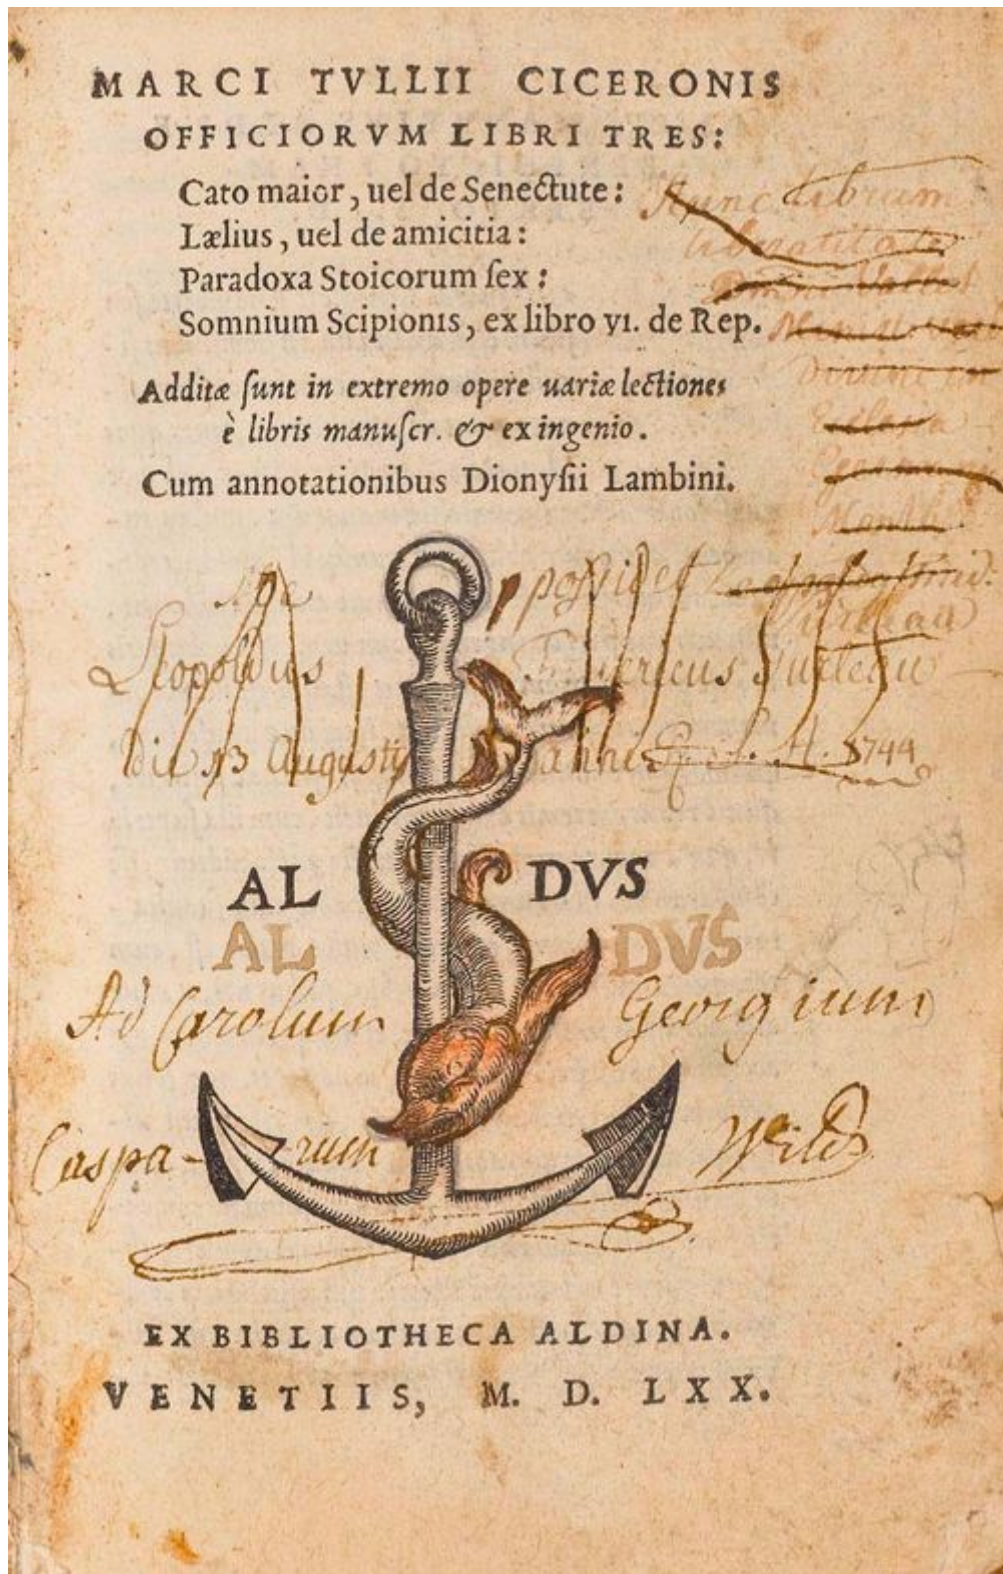 MARCI TVLLII CICERONIS
OFFICIORVM LIBRI TRES:
Cato maior, uel de Senectute:
Lælius, uel de amicitia:
Paradoxa Stoicorum ſex:
Somnium Scipionis, ex libro vi. de Rep.
Additæ ſunt in extremo opere uariæ lectiones
è libris manuſcr. & ex ingenio.
Cum annotationibus Dionyſii Lambini.
Hunc librum
liberalitate
possidet
Leopoldus
Die 13 Augusti 1744
ALDVS
ALDVS
Ad Carolum Georgium
Caspa-rum Wild
EX BIBLIOTHECA ALDINA.
VENETIIS, M. D. LXX.